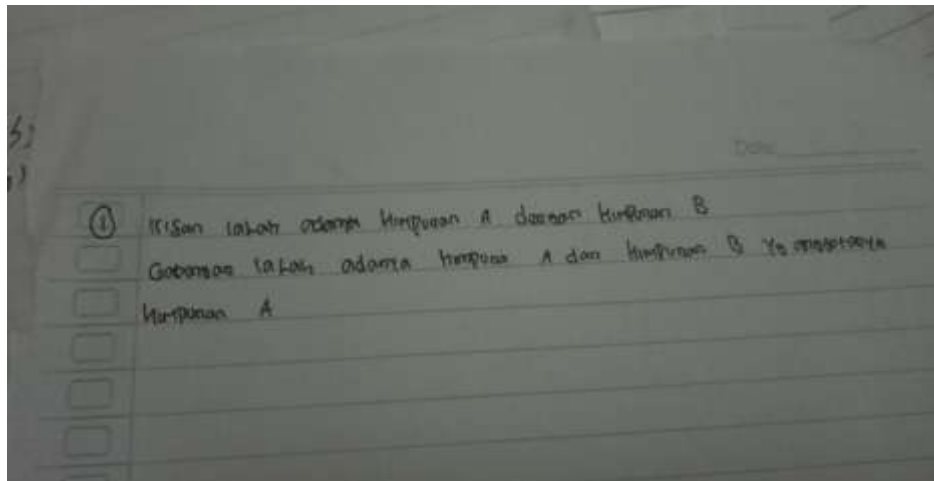 Date:
① Irisan ialah adanya Himpunan A dengan Himpunan B
Gabungan ialah adanya himpunan A dan Himpunan B yg anggotanya
Himpunan A